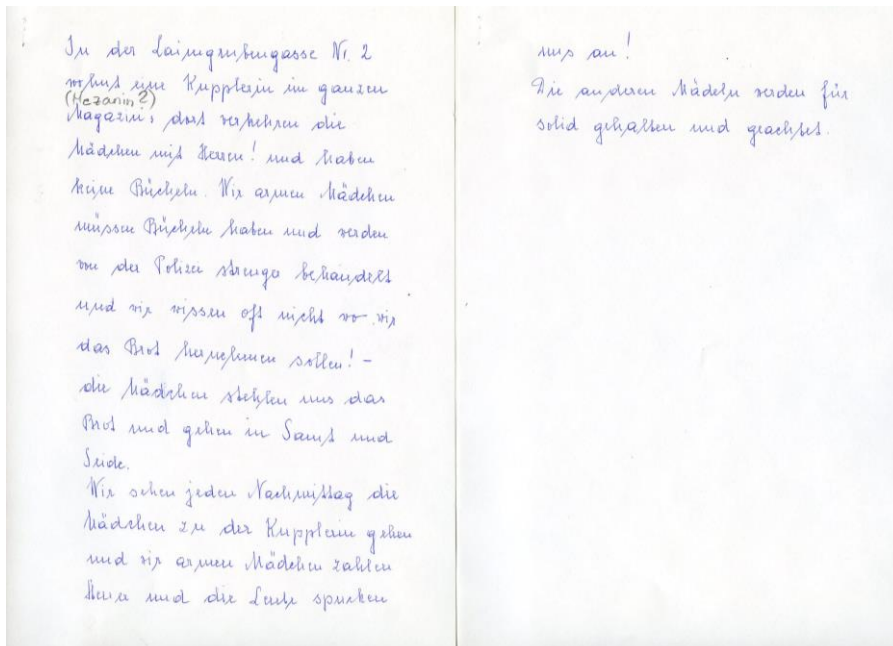 In der Laimgrubengasse Nr. 2
wohnt eine Kupplerin im ganzen
(Hezanin?)
Magazin, dort verkehren die
Mädchen mit Herren! und haben
keine Bücheln. Wir armen Mädchen
müssen Bücheln haben und werden
von der Polizei strenge behandelt
und wir wissen oft nicht wo wir
das Brot hernehmen sollen! –
die Mädchen stehlen uns das
Brot und gehen in Samt und
Seide.
Wir sehen jeden Nachmittag die
Mädchen zu der Kupplerin gehen
und wir armen Mädchen zahlen
Steuer und die Leute spucken
uns an!
Die anderen Mädeln werden für
solid gehalten und geachtet.